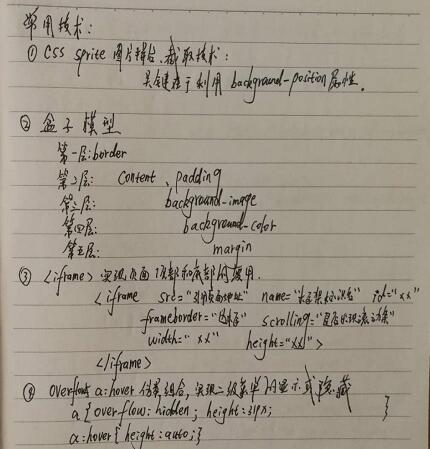 常用技术：
① CSS sprite 图片拼合、截取技术：
关键在于利用 background-position 属性。
② 盒子模型
第一层：border
第二层： content、padding
第三层： background-image
第四层： background-color
第五层： margin
③ <iframe> 实现页面顶部和底部的复用.
<iframe src="引用页面地址" name="框架标识名" id="xx"
frameborder="边框" scrolling="是否出现滚动条"
width="xx" height="xx">
</iframe>
④ overflow与 a:hover 伪类组合，实现二级菜单的显示或隐藏
a { overflow: hidden; height: 31px; }
a:hover { height: auto; }